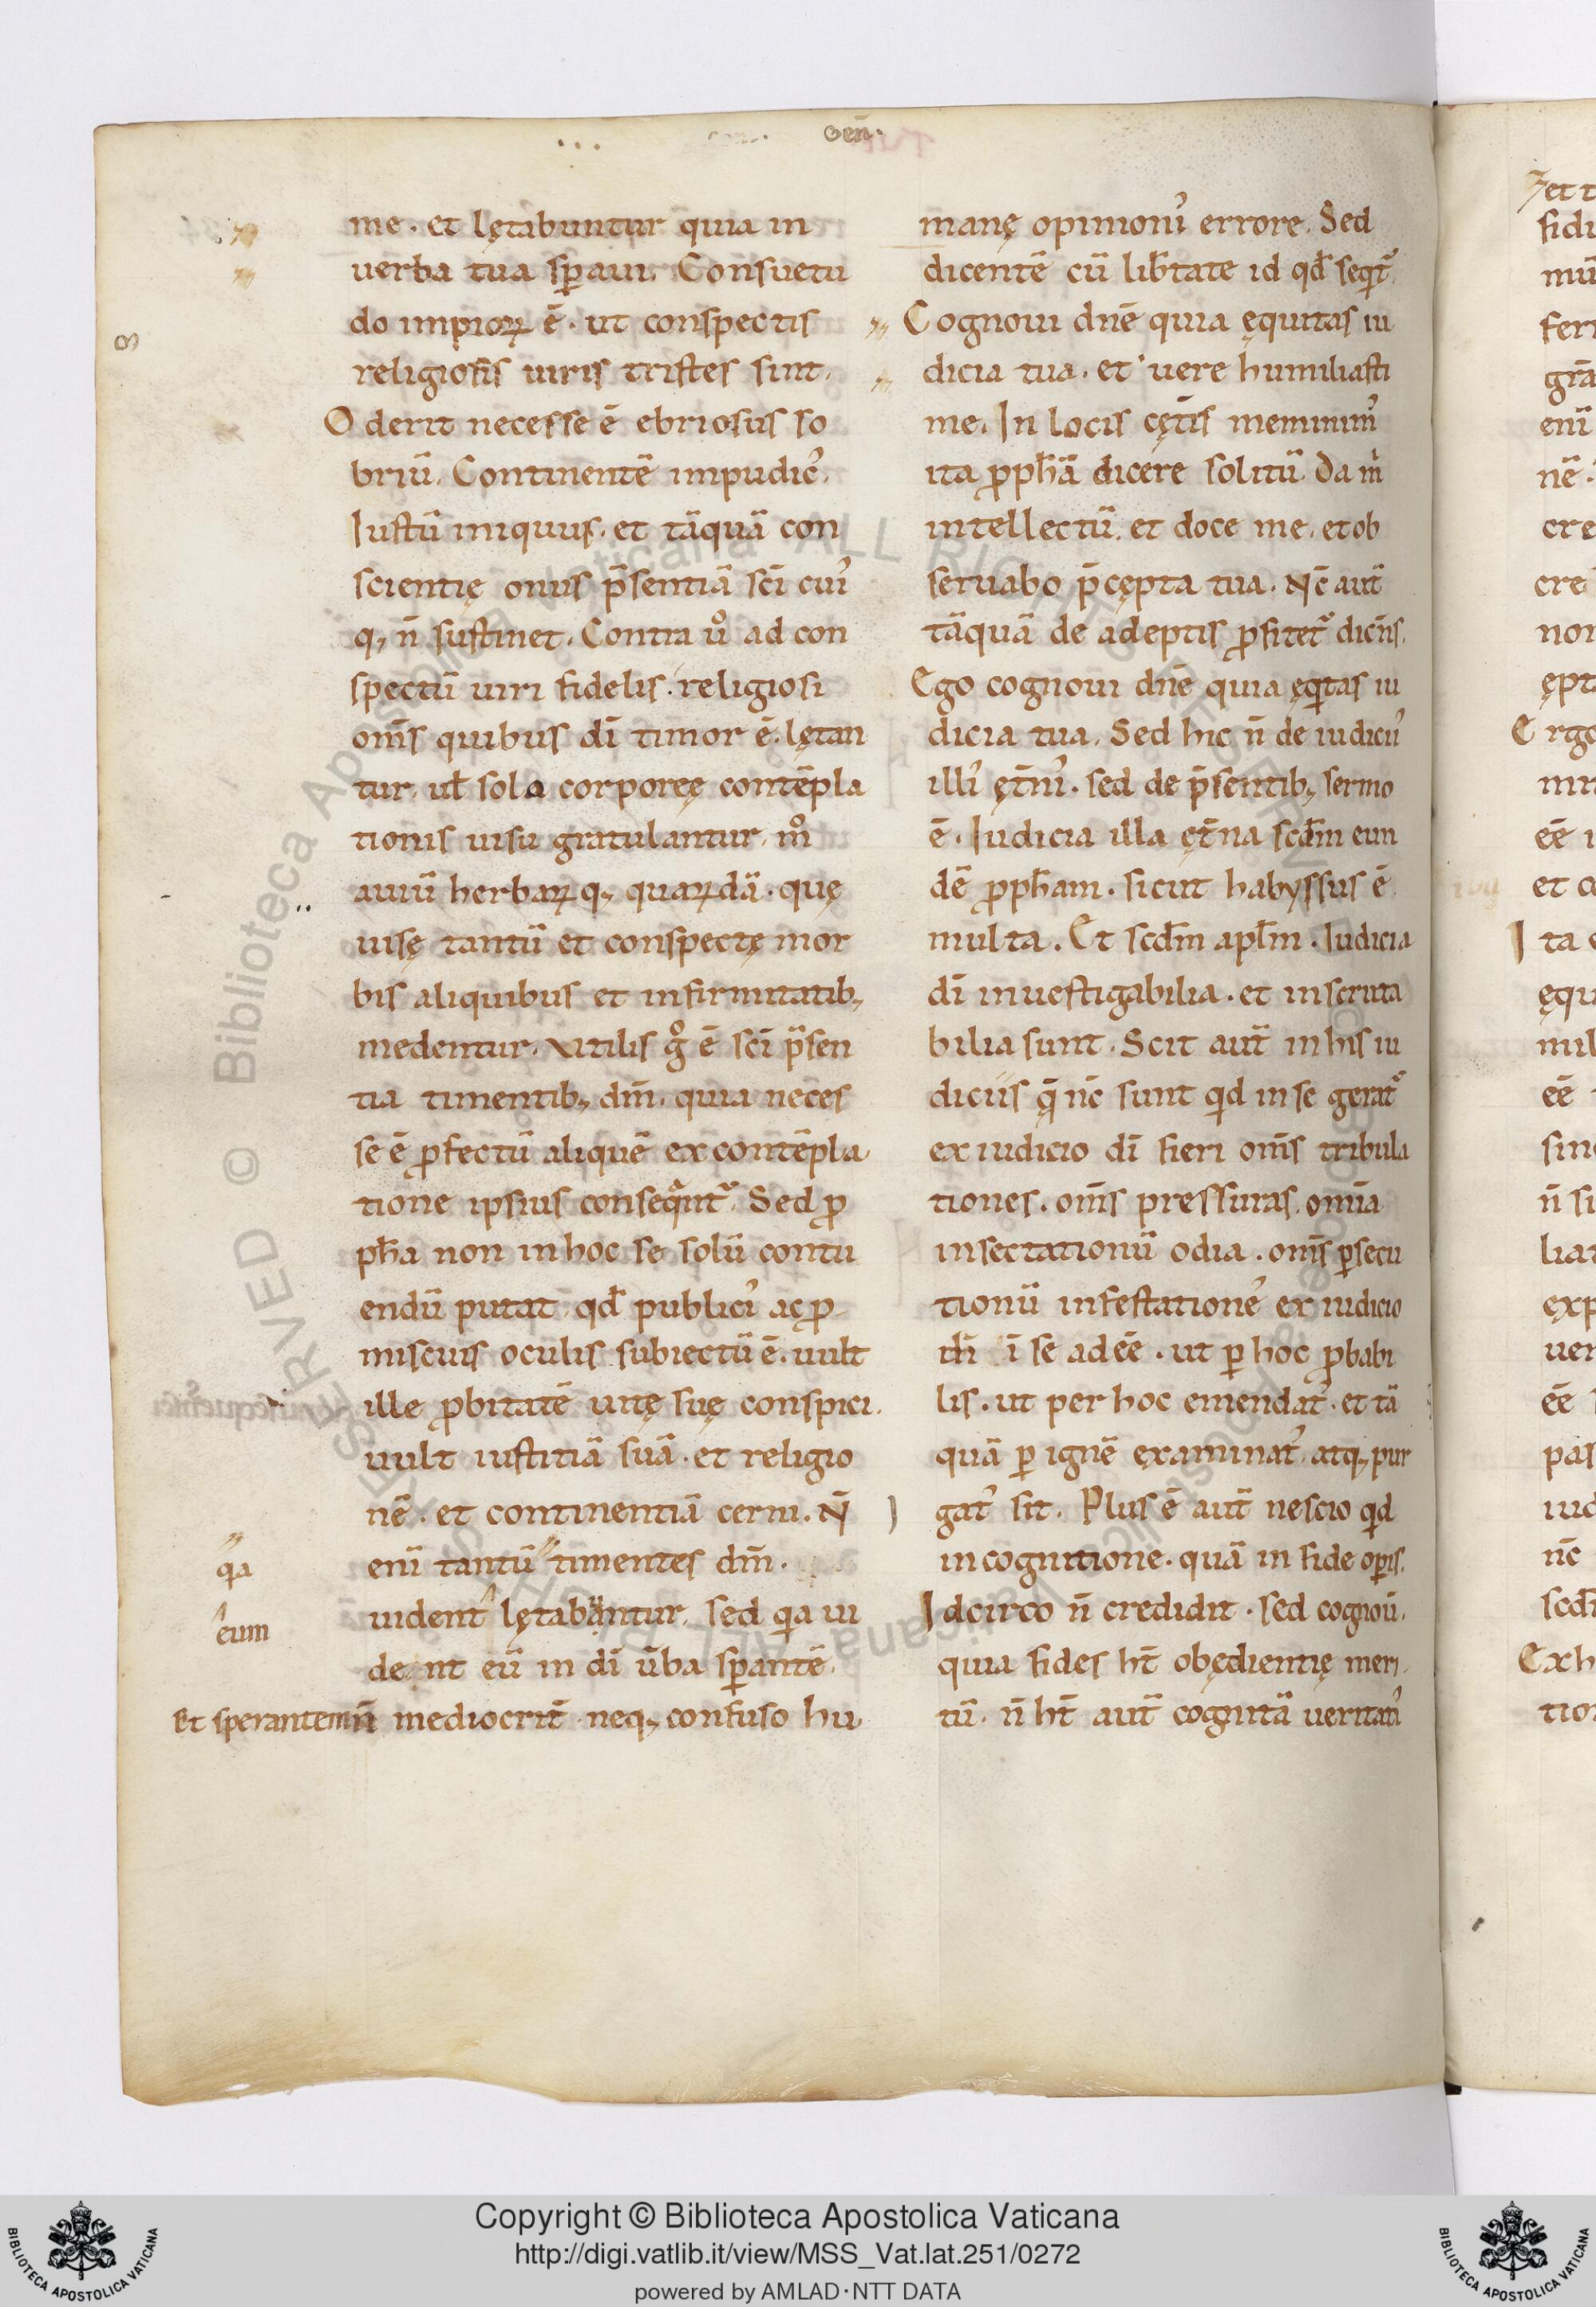 Gen̄.
me. et lętabuntur quia in
uerba tua sꝑaui. Consuetu
do impioꝝ ē. ut conspectis
religiosis uiris tristes sint.
Oderit necesse ē ebriosus so
briū. Continentē impudic᾽.
Iustū iniquus. et tāquā con
scientię onus p̄sentiā sc̄i cui᾽
q; n̄ sustinet. Contra uͦ ad con
spectū uiri fidelis. religiosi
om̄s quibus dī timor ē. lętan
tur. uł sola corporeę contēpla
tionis uisu gratulantur. mͦ
auiū herbaꝝ q; quaꝝdā. quę
uisę tantū et conspectę mor
bis aliquibus et infirmitatib;
medentur. Vtilis gͦ ē sc̄i p̄sen
tia timentib; dm̄. quia neces
se ē ꝓfectū aliquē ex contēpla
tione ipsius conseqͣnt᾽. Sed ꝓ
ph̄a non in hoc se solū contu
endū putat. qd̄ publici᾽ ac ꝓ
miscuis oculis subiectū ē. uult
ille ꝓbitatē uitę suę conspici.
uult iustitiā suā. et religio
nē. et continentiā cerni. N̄
enī tantū timentes dm̄.
uident lętabuntur. sed qa ui
dent eū in dī ūba sꝑantē.
n̄ mediocrit̄. neq; confuso hu
qa
eum
Et sperantem
manę opinioni᾽ errore. Sed
dicentē cū lib̄tate id qd̄ seqt᾽.
Cognoui dn̄e quia ęquitas iu
dicia tua. et uere humiliasti
me. In locis cęt̄is meminim᾽
ita ꝓph̄ā dicere solitū. Da m̄
intellectū. et doce me. et ob
seruabo p̄cępta tua. Nc̄ aut̄
tāquā de adeptis ꝓfitet᾽ dicn̄s.
Ego cognoui dn̄e quia ęqtas iu
dicia tua. Sed hic n̄ de iudicii᾽
illi᾽ ęt̄ni᾽. sed de p̄sentib; sermo
ē. Iudicia illa ęt̄na scd̄m eun
dē ꝓph̄am. sicut habyssus ē
multa. Et scd̄m apl̄m. Iudicia
dī inuestigabilia. et inscruta
bilia sunt. Scit aut̄ in his iu
diciis q̄ nc̄ sunt qd in se gerat᾽
ex iudicio dī fieri om̄s tribula
tiones. om̄s pressuras. om̄ia
insectationū odia. om̄s ꝑsecu
tionū infestatione᾽ ex iudicio
dī ī se adeē. ut ꝑ hoc ꝓbabi
lis. ut per hoc emendat᾽. et tā
quā ꝑ ignē examinat᾽. atq; pur
gat᾽ sit. Plus ē aut̄ nescio qd
in cognitione. quā in fide oꝑis.
Idcirco n̄ credidit. sed cognoū.
quia fides ht̄ obędientię meri
tū. n̄ ht̄ aut̄ cognitā ueritati᾽
Copyright © Biblioteca Apostolica Vaticana
http://digi.vatlib.it/view/MSS_Vat.lat.251/0272
powered by AMLAD·NTT DATA